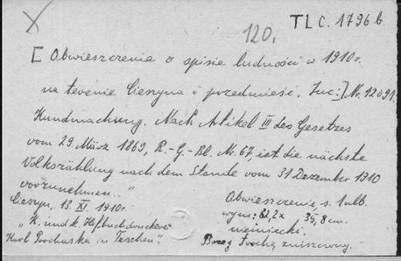 120.
TL C. 1796 b
[ Obwieszczenie o spisie ludności w 1910 r.
na terenie Cieszyna i przedmieść. Inc:] Nr. 12091.
Kundmachung. Nach Artikel III des Gesetzes
vom 29. März 1869, R.-G.-Bl. Nr. 67, ist die nächste
Volkszählung nach dem Stande vom 31 Dezember 1910
vorzunehmen..."
Cieszyn, 18 XI. 1910r.
"K. und k. Hofbuchdruckerei
Karl Prochaska in Teschen".
Obwieszczenie, s. 1 nlb.
wym: 62,2x 95,8 cm.
niemiecki.
Brzeg trochę zniszczony.